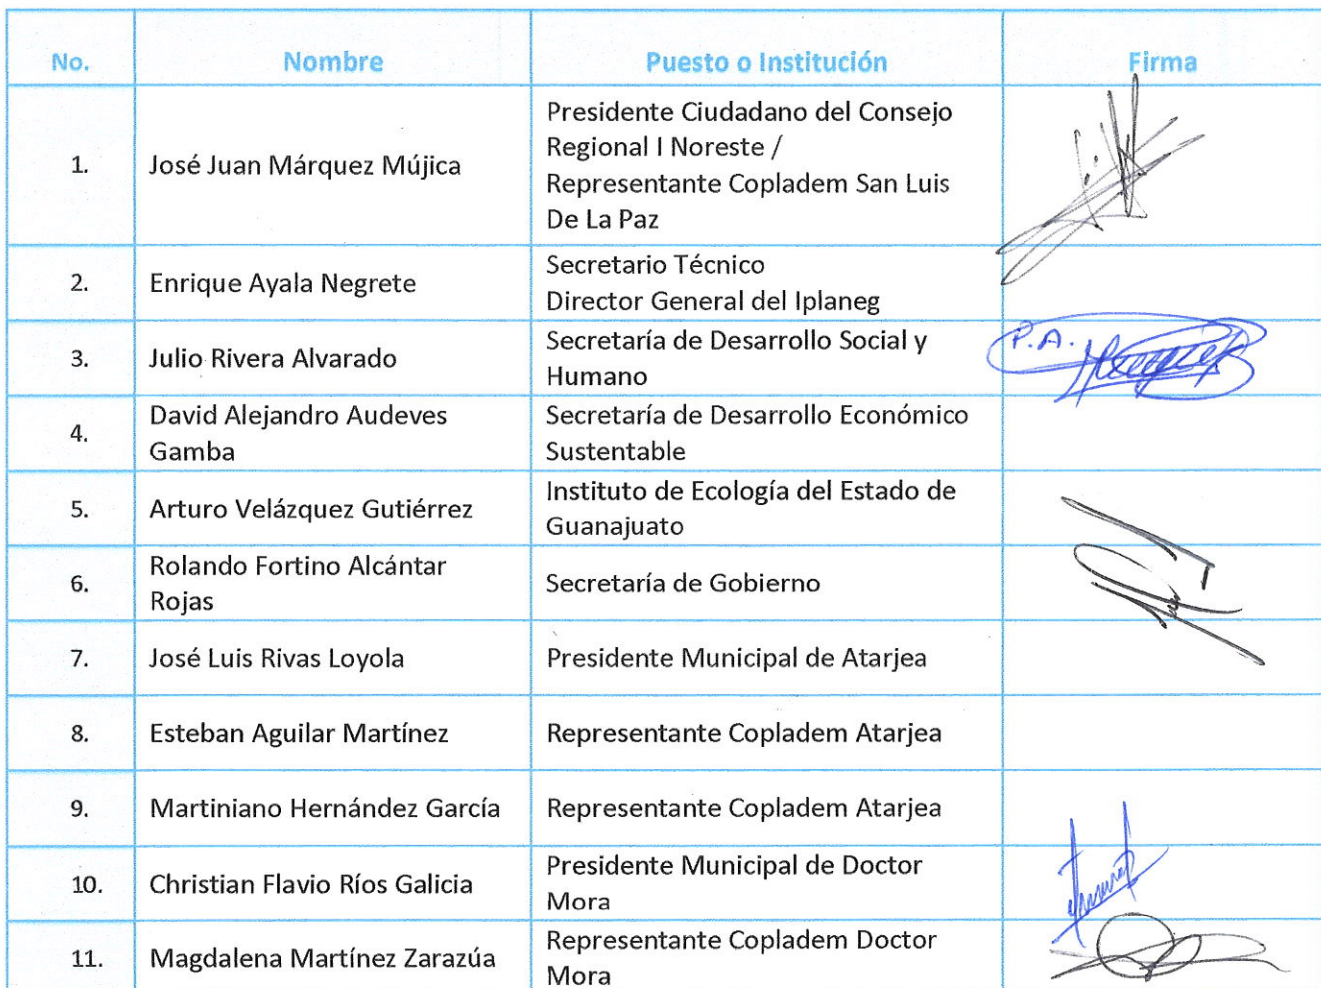 No. Nombre Puesto o Institución Firma
1. José Juan Márquez Mújica Presidente Ciudadano del Consejo
Regional I Noreste /
Representante Copladem San Luis
De La Paz
2. Enrique Ayala Negrete Secretario Técnico
Director General del Iplaneg
3. Julio Rivera Alvarado Secretaría de Desarrollo Social y
Humano
P.A.
4. David Alejandro Audeves
Gamba
Secretaría de Desarrollo Económico
Sustentable
5. Arturo Velázquez Gutiérrez Instituto de Ecología del Estado de
Guanajuato
6. Rolando Fortino Alcántar
Rojas
Secretaría de Gobierno
7. José Luis Rivas Loyola Presidente Municipal de Atarjea
8. Esteban Aguilar Martínez Representante Copladem Atarjea
9. Martiniano Hernández García Representante Copladem Atarjea
10. Christian Flavio Ríos Galicia Presidente Municipal de Doctor
Mora
11. Magdalena Martínez Zarazúa Representante Copladem Doctor
Mora